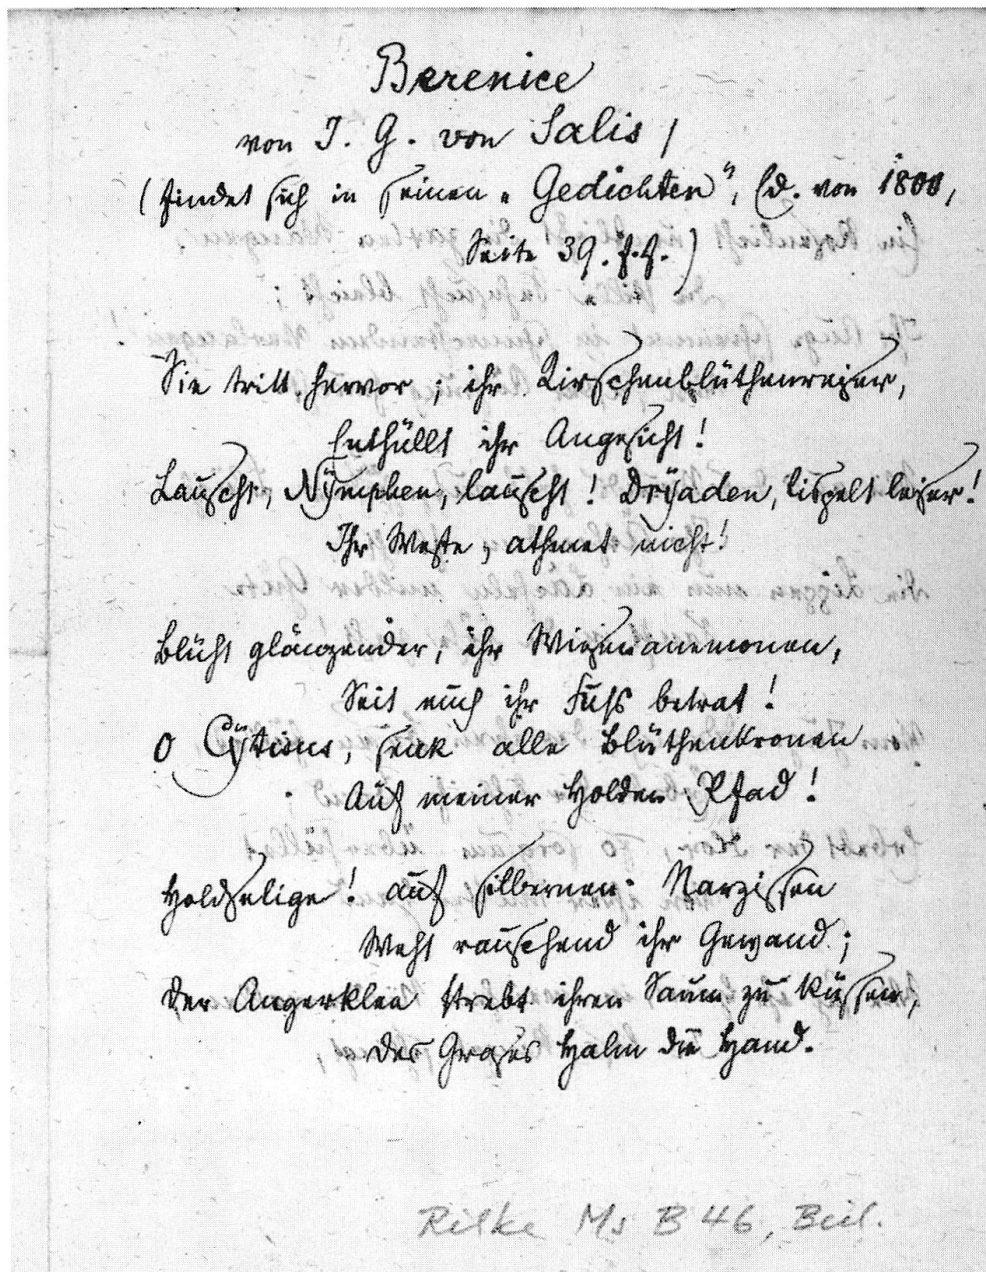 Berenice
von J. G. von Salis /
(findet sich in seinen „Gedichten", Ed. von 1800,
Seite 39. f.f.)
Sie tritt hervor; ihr Kirschenblüthenreiser,
Enthüllt ihr Angesicht!
Lauscht, Nÿmphen, lauscht! Drÿaden, lispelt leiser!
Ihr Weste, athmet nicht!
Blüht glänzender, ihr Wiesenanemonen,
Seit euch ihr Fuß betrat!
O Cÿtisus, senk alle Blüthenkronen
Auf meiner Holden Pfad!
Holdselige! auf silbernen Narzissen
Weht rauschend ihr Gewand;
Der Angerklee strebt ihren Saum zu küssen,
Des Grases Halm die Hand.
Rilke Ms B 46, Beil.